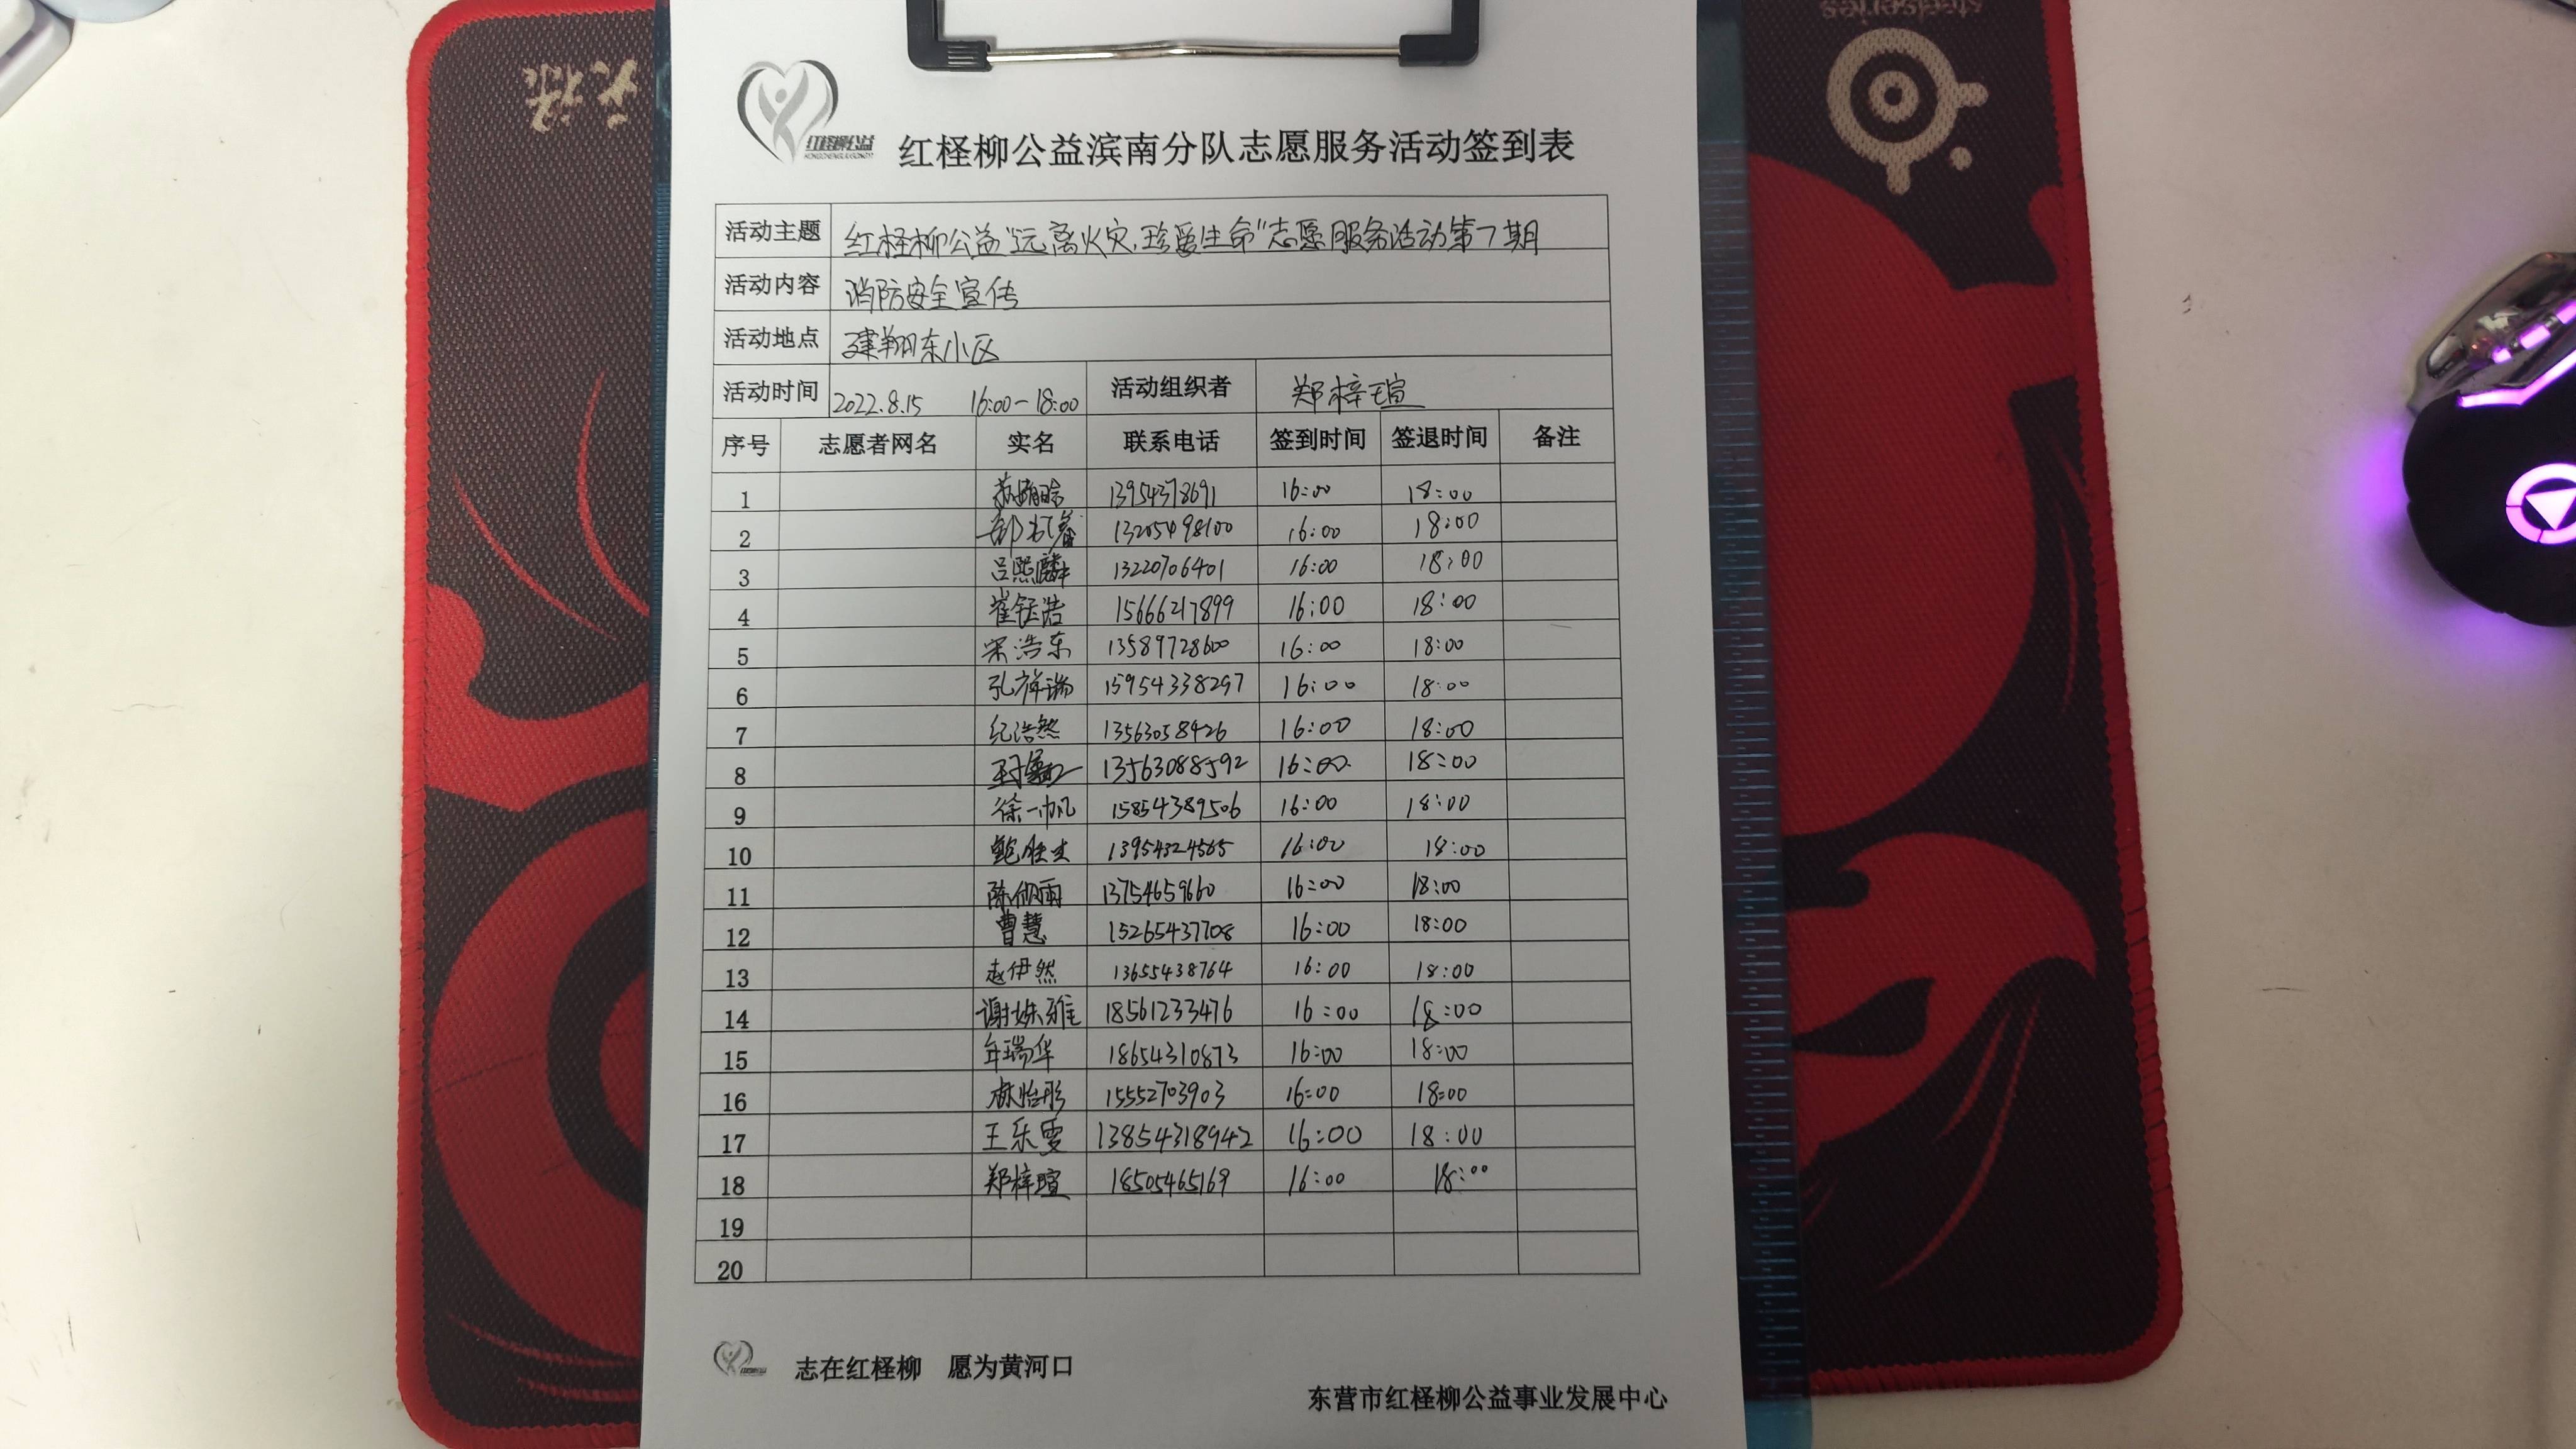 steelseries
红柽柳公益
红柽柳公益滨南分队志愿服务活动签到表
活动主题 红柽柳公益"远离火灾,珍爱生命"志愿服务活动第7期
活动内容 消防安全宣传
活动地点 建翔东小区
活动时间 2022.8.15 16:00-18:00 活动组织者 郑梓瑄
序号 志愿者网名 实名 联系电话 签到时间 签退时间 备注
1 13954378691 16:00 18:00
2 13205498100 16:00 18:00
3 吕熙麟 13220706401 16:00 18:00
4 崔钰浩 15666217899 16:00 18:00
5 宋浩东 13589728600 16:00 18:00
6 孔祥瑞 15954338297 16:00 18:00
7 纪浩然 13563058426 16:00 18:00
8 13563088592 16:00 18:00
9 徐一帆 15854389506 16:00 18:00
10 13954324565 16:00 18:00
11 陈佩雨 13754659660 16:00 18:00
12 曹慧 15265437708 16:00 18:00
13 赵伊然 13655438764 16:00 18:00
14 谢姝雅 18561233476 16:00 18:00
15 年瑞华 18654310873 16:00 18:00
16 林怡彤 15552703903 16:00 18:00
17 王乐雯 13854318942 16:00 18:00
18 郑梓瑄 18505465169 16:00 18:00
19
20
志在红柽柳 愿为黄河口
东营市红柽柳公益事业发展中心